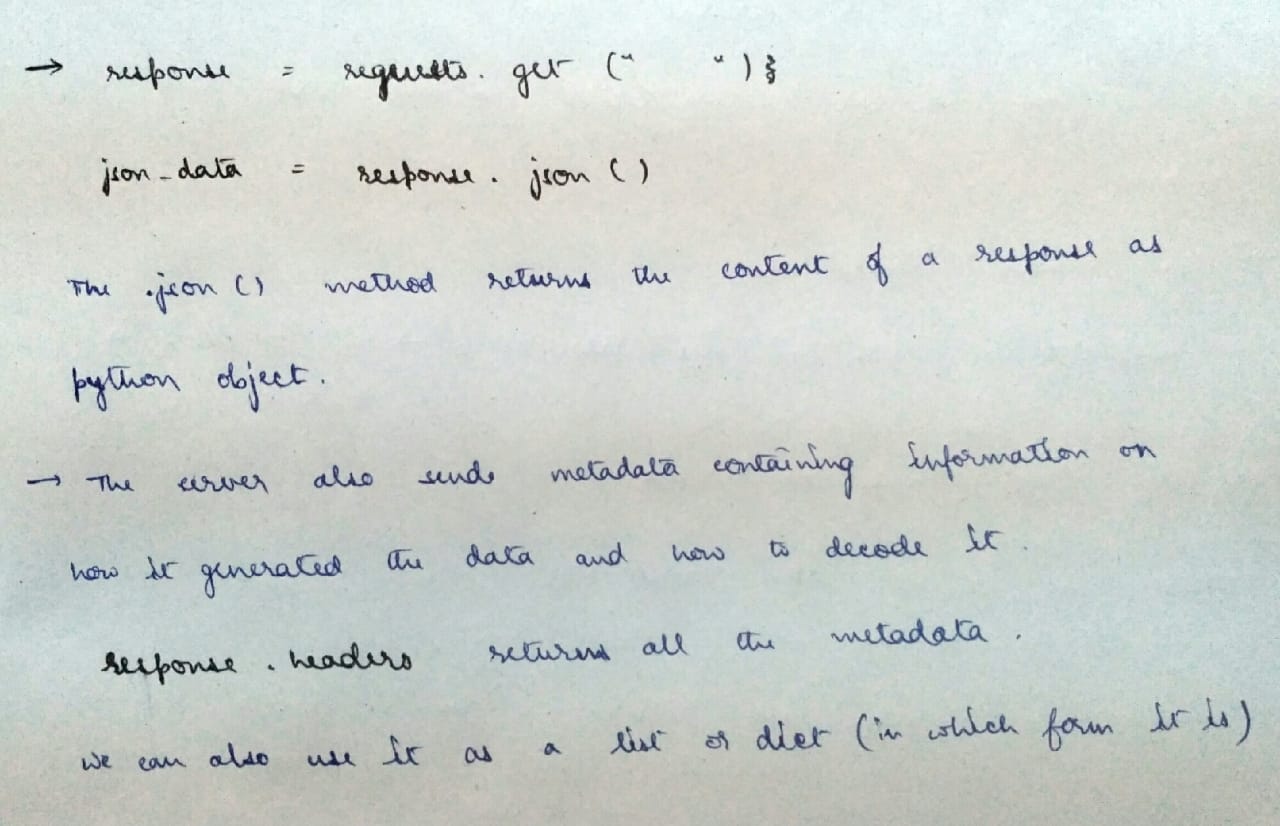 → response = requests. get (" ") }
json_data = response. json ()
The .json () method returns the content of a response as
python object.
→ The server also sends metadata containing information on
how it generated the data and how to decode it.
response . headers returns all the metadata .
we can also use it as a list or dict (in which form it is)